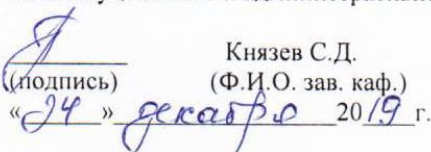 Князев С.Д.
(подпись) (Ф.И.О. зав. каф.)
«24» декабря 2019 г.